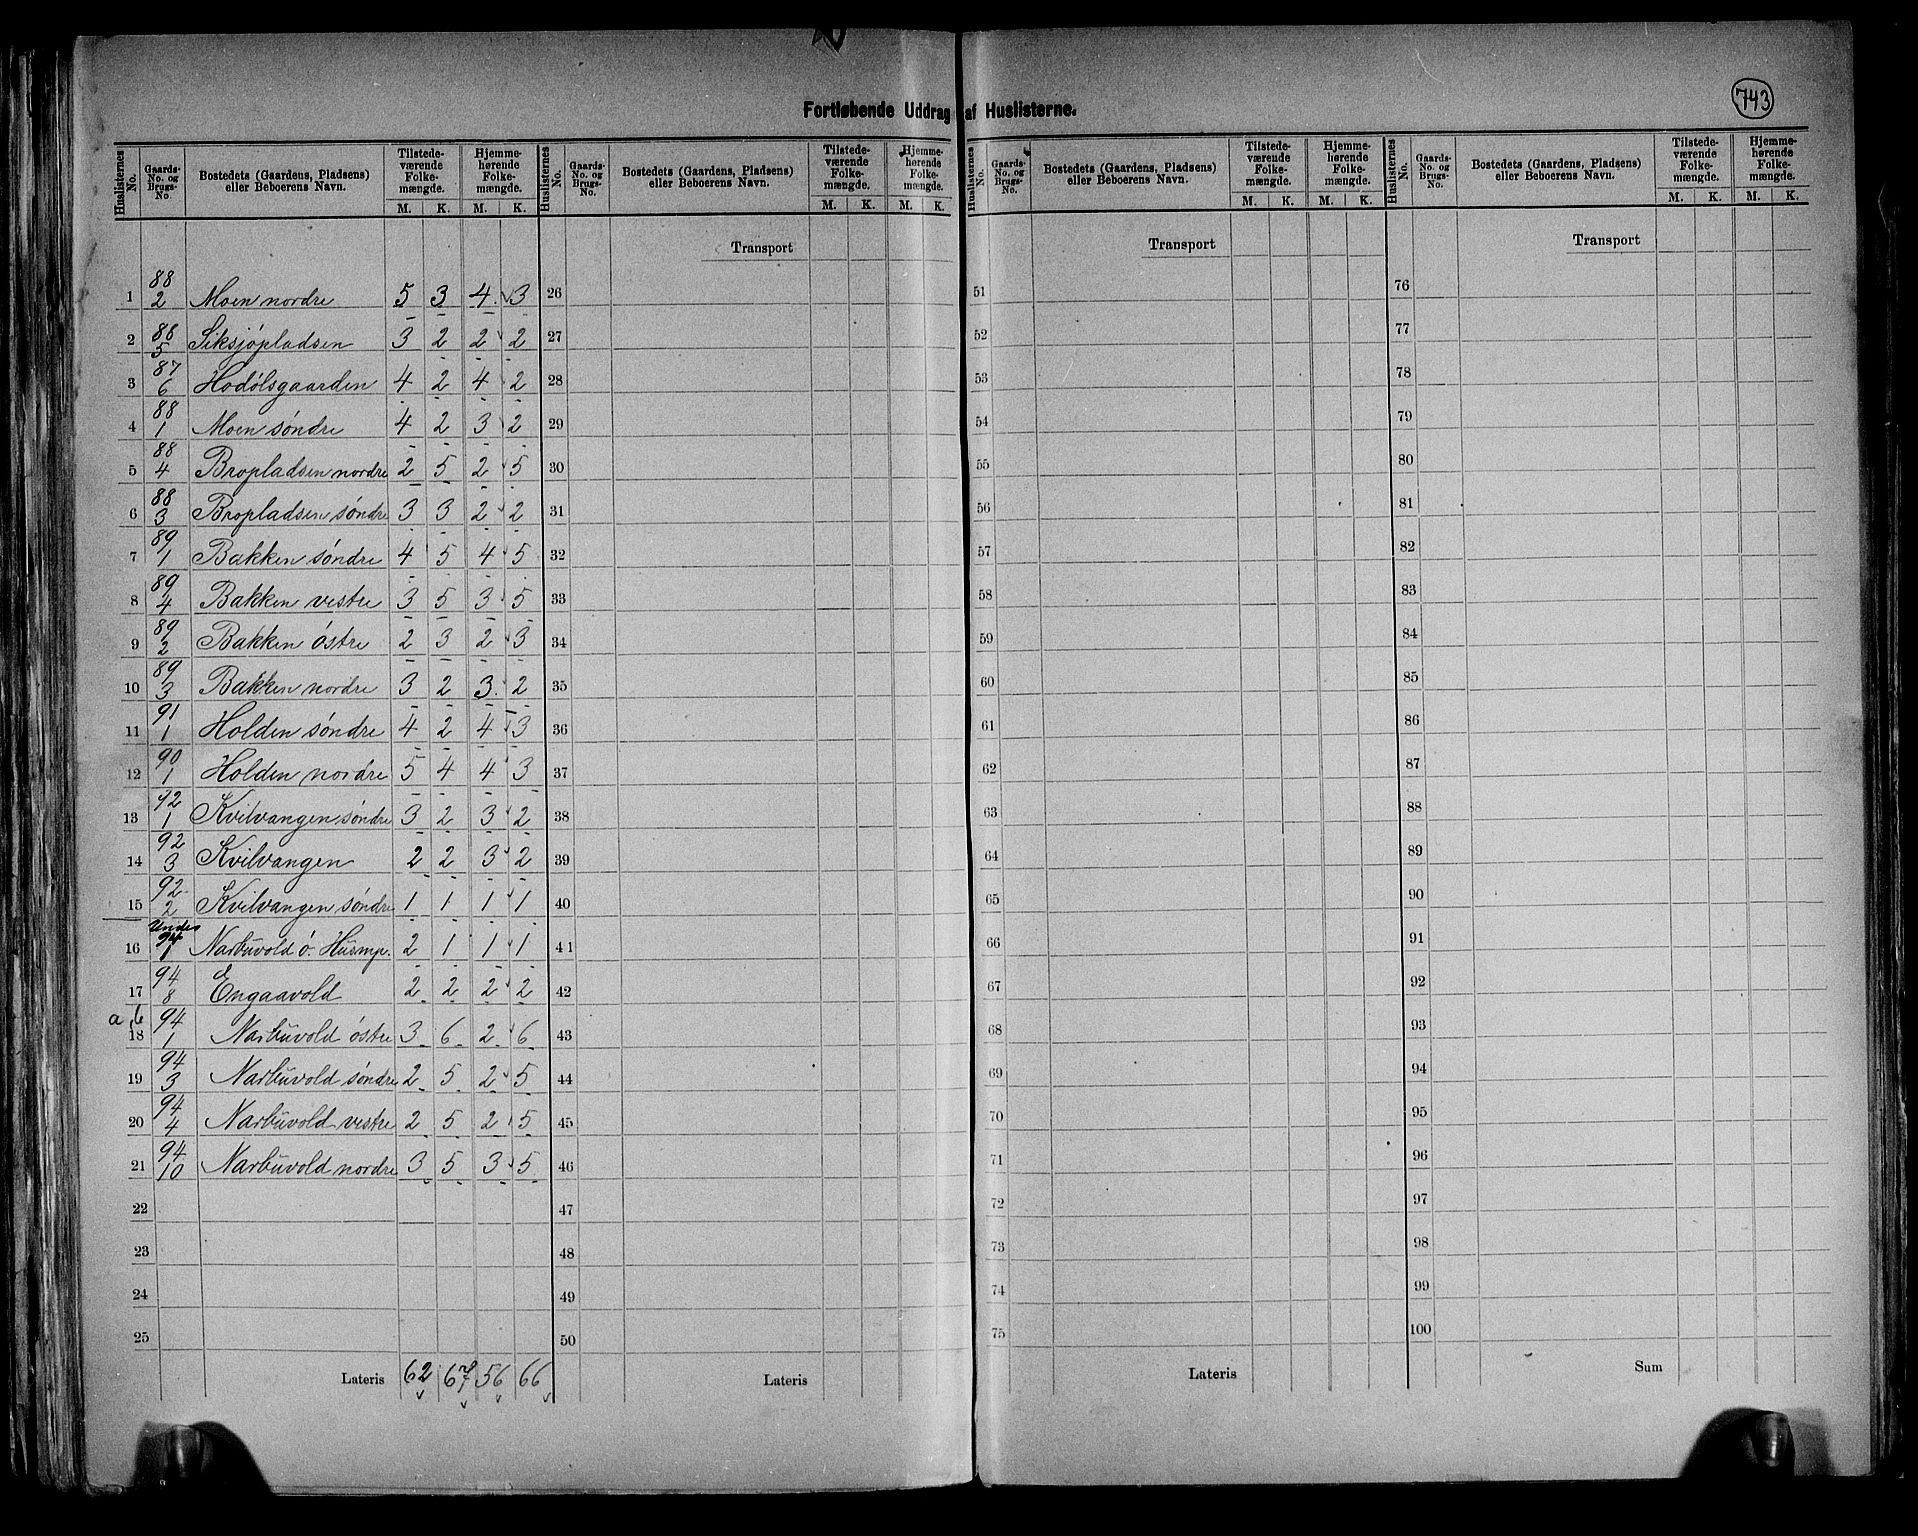 743
Fortløbende Uddrag af Huslisterne.
Huslisternes No. | Gaards-No. og Brugs-No. | Bostedets (Gaardens, Pladsens) eller Beboerens Navn. | Tilstedeværende Folkemængde. M. K. | Hjemmehørende Folkemængde. M. K.
Transport
1 | 88/2 | Moen nordre | 5 | 3 | 4 | 3
2 | 88/5 | Siksjøpladsen | 3 | 2 | 2 | 2
3 | 87/6 | Hodølsgaarden | 4 | 2 | 4 | 2
4 | 88/1 | Moen søndre | 4 | 2 | 3 | 2
5 | 88/4 | Bropladsen nordre | 2 | 5 | 2 | 5
6 | 88/3 | Bropladsen søndre | 3 | 3 | 2 | 2
7 | 89/1 | Bakken søndre | 4 | 5 | 4 | 5
8 | 89/4 | Bakken vestre | 3 | 5 | 3 | 5
9 | 89/2 | Bakken østre | 2 | 3 | 2 | 3
10 | 89/3 | Bakken nordre | 3 | 2 | 3 | 2
11 | 91/1 | Holden søndre | 4 | 2 | 4 | 3
12 | 90/1 | Holden nordre | 5 | 4 | 4 | 3
13 | 92/1 | Kvilvangen søndre | 3 | 2 | 3 | 2
14 | 92/3 | Kvilvangen | 2 | 2 | 3 | 2
15 | 92/2 | Kvilvangen søndre | 1 | 1 | 1 | 1
16 | Under 94/1 | Narbuvold ø. Husmp. | 2 | 1 | 1 | 1
17 | 94/8 | Engaavold | 2 | 2 | 2 | 2
a, b 18 | 94/1 | Narbuvold østre | 3 | 6 | 2 | 6
19 | 94/3 | Narbuvold søndre | 2 | 5 | 2 | 5
20 | 94/4 | Narbuvold vestre | 2 | 5 | 2 | 5
21 | 94/10 | Narbuvold nordre | 3 | 5 | 3 | 5
22
23
24
25
Lateris | 62 | 67 | 56 | 66
Huslisternes No. | Gaards-No. og Brugs-No. | Bostedets (Gaardens, Pladsens) eller Beboerens Navn. | Tilstedeværende Folkemængde. M. K. | Hjemmehørende Folkemængde. M. K.
Transport
26
27
28
29
30
31
32
33
34
35
36
37
38
39
40
41
42
43
44
45
46
47
48
49
50
Lateris
Huslisternes No. | Gaards-No. og Brugs-No. | Bostedets (Gaardens, Pladsens) eller Beboerens Navn. | Tilstedeværende Folkemængde. M. K. | Hjemmehørende Folkemængde. M. K.
Transport
51
52
53
54
55
56
57
58
59
60
61
62
63
64
65
66
67
68
69
70
71
72
73
74
75
Lateris
Huslisternes No. | Gaards-No. og Brugs-No. | Bostedets (Gaardens, Pladsens) eller Beboerens Navn. | Tilstedeværende Folkemængde. M. K. | Hjemmehørende Folkemængde. M. K.
Transport
76
77
78
79
80
81
82
83
84
85
86
87
88
89
90
91
92
93
94
95
96
97
98
99
100
Sum